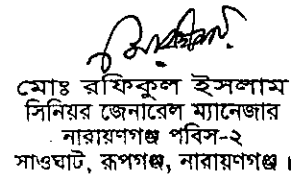 মোঃ রফিকুল ইসলাম
সিনিয়র জেনারেল ম্যানেজার
নারায়ণগঞ্জ পবিস-২
সাওঘাট, রূপগঞ্জ, নারায়ণগঞ্জ।